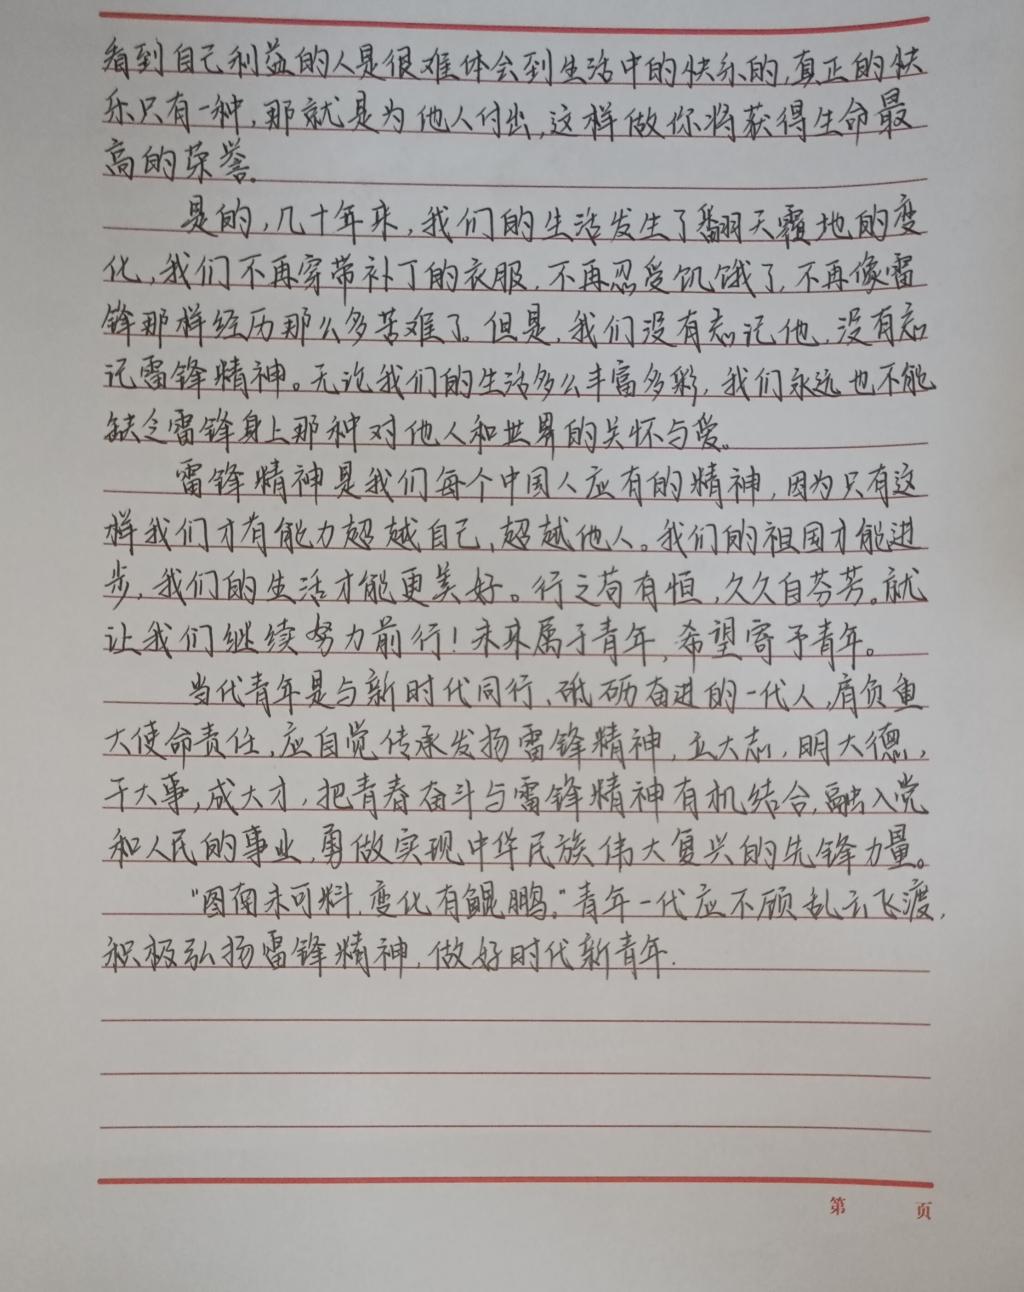 看到自己利益的人是很难体会到生活中的快乐的,真正的快
乐只有一种,那就是为他人付出,这样做你将获得生命最
高的荣誉。
是的,几十年来,我们的生活发生了翻天覆地的变
化,我们不再穿带补丁的衣服,不再忍受饥饿了,不再像雷
锋那样经历那么多苦难了。但是,我们没有忘记他,没有忘
记雷锋精神。无论我们的生活多么丰富多彩,我们永远也不能
缺乏雷锋身上那种对他人和世界的关怀与爱。
雷锋精神是我们每个中国人应有的精神,因为只有这
样我们才有能力超越自己,超越他人。我们的祖国才能进
步,我们的生活才能更美好。行之苟有恒,久久自芬芳。就
让我们继续努力前行!未来属于青年,希望寄予青年。
当代青年是与新时代同行、砥砺奋进的一代人,肩负重
大使命责任,应自觉传承发扬雷锋精神,立大志,明大德,
干大事,成大才,把青春奋斗与雷锋精神有机结合,融入党
和人民的事业,勇做实现中华民族伟大复兴的先锋力量。
"图南未可料,变化有鲲鹏。"青年一代应不顾乱云飞渡,
积极弘扬雷锋精神,做好时代新青年.
第 页